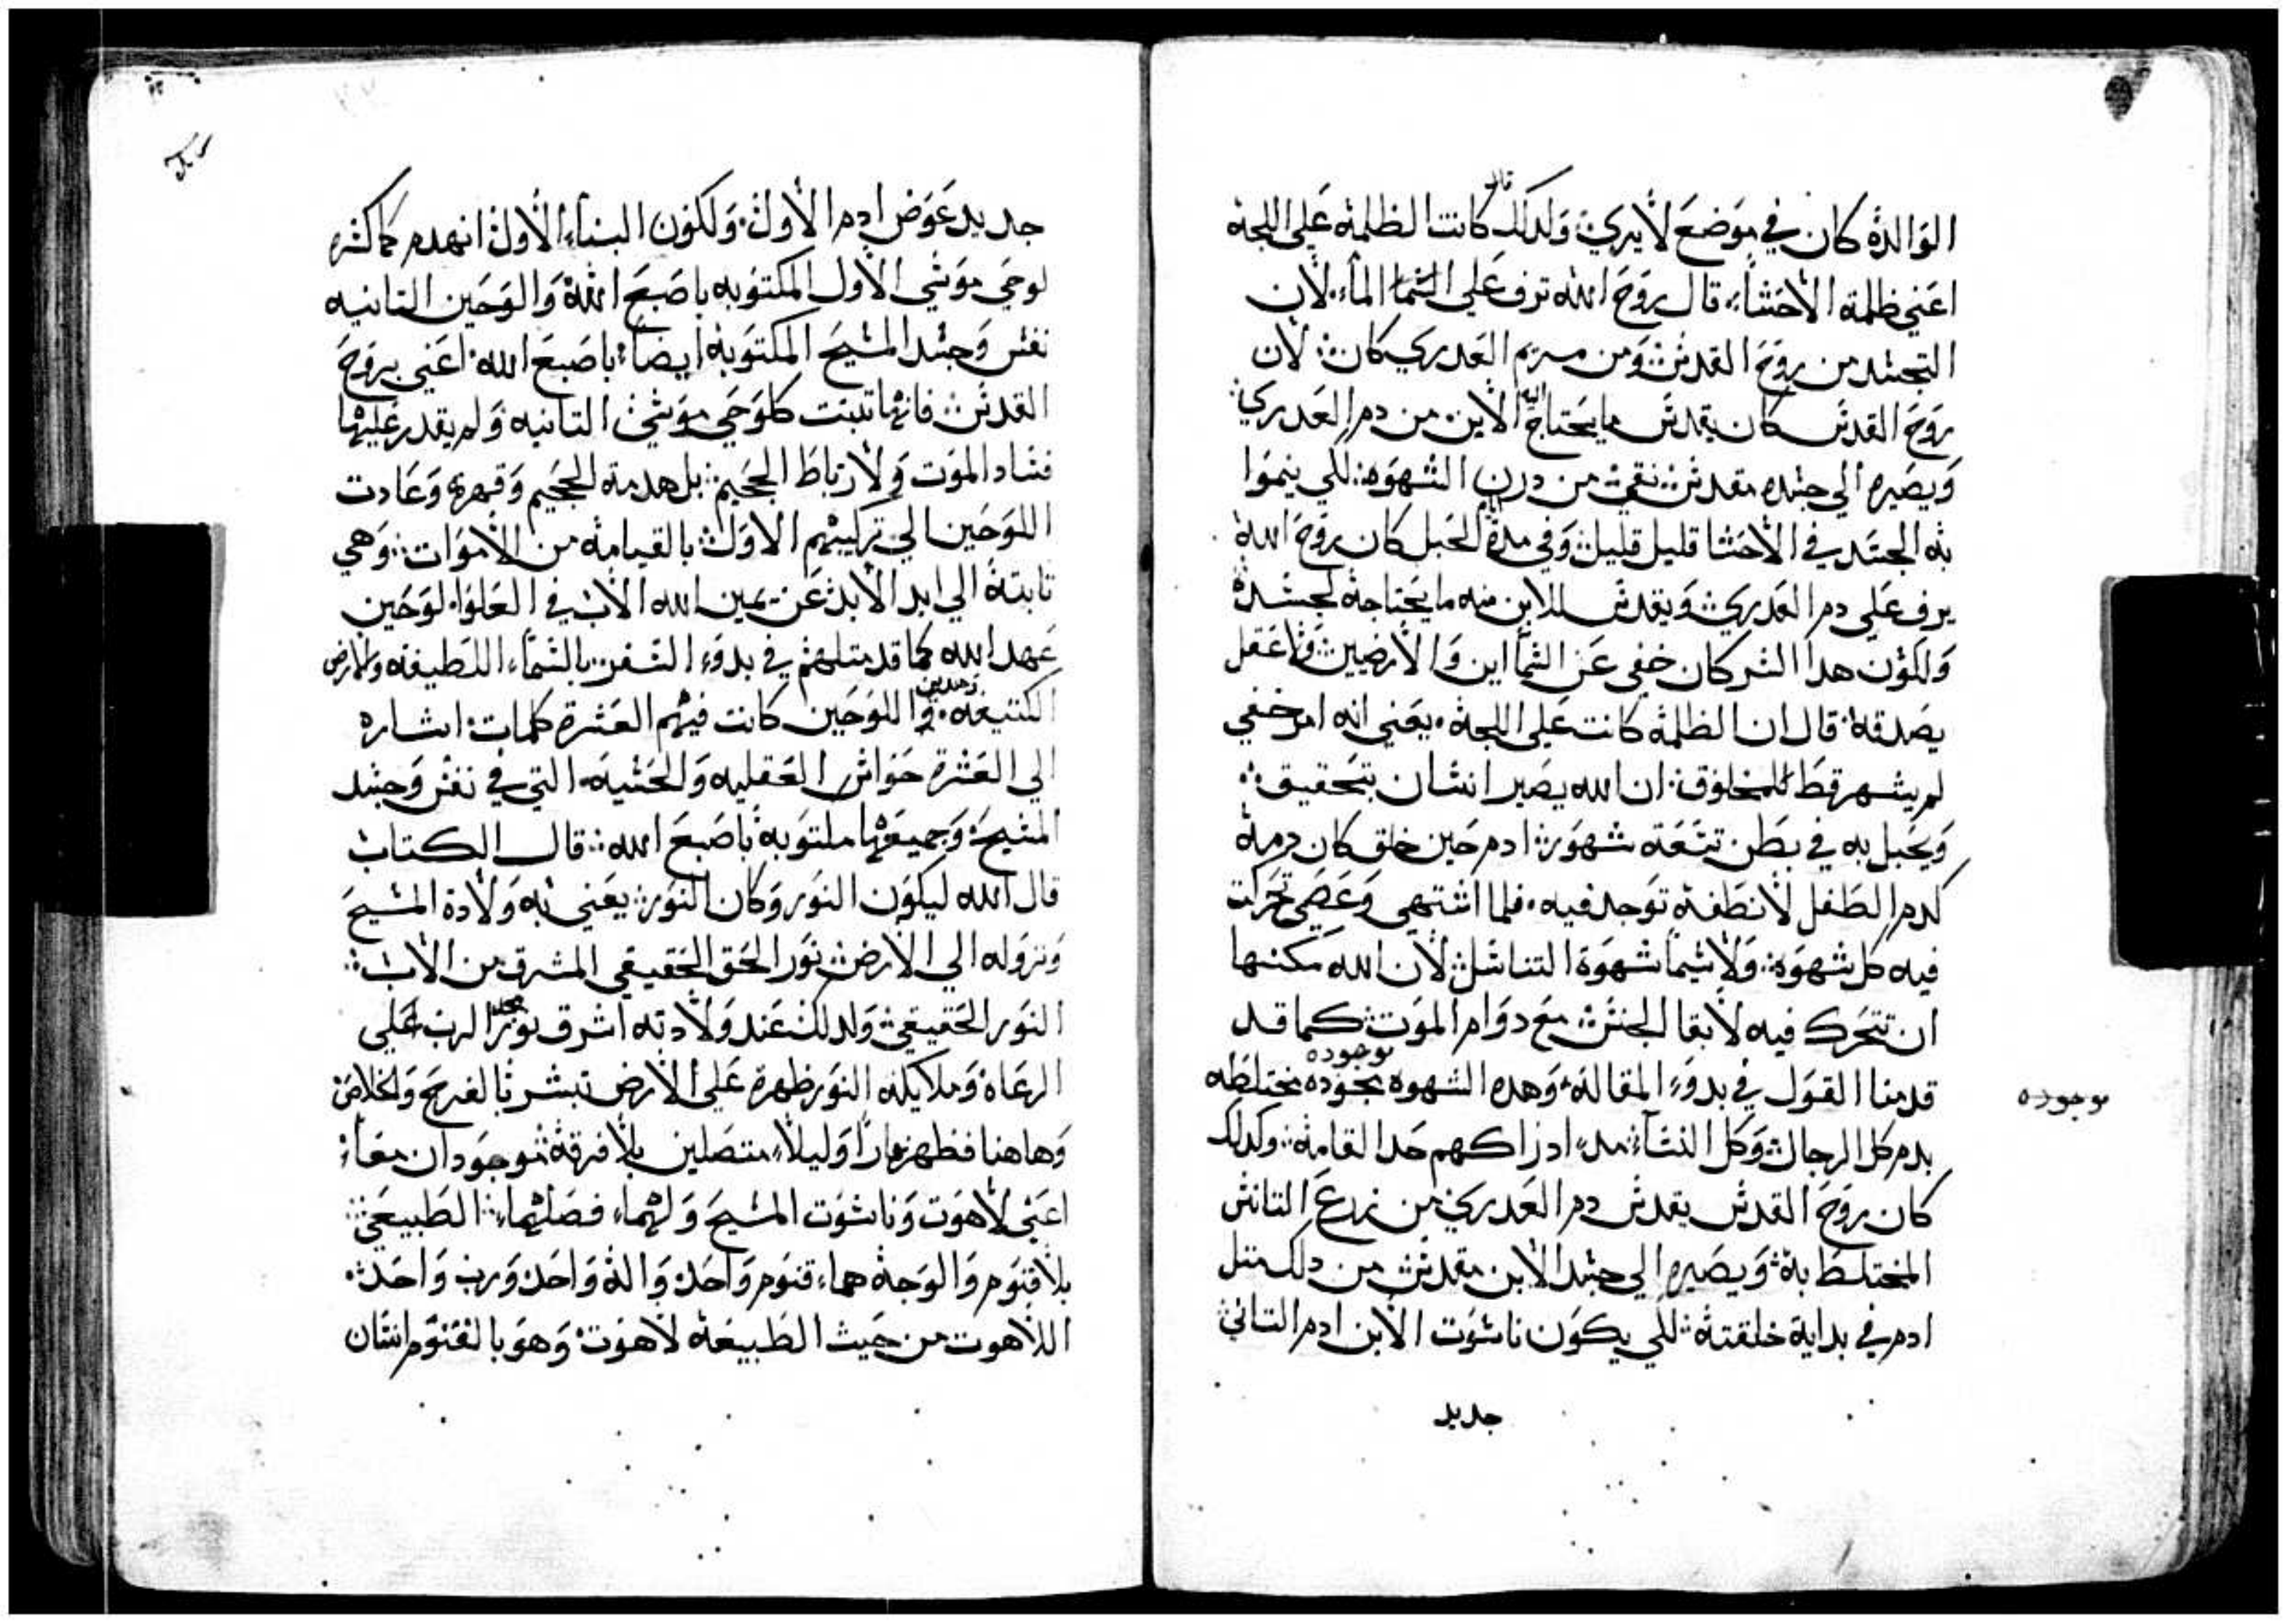 الوالدة كان في موضع لا يري ولدلك قال كانت الظلمه علي اللجه
اعني ظلمة الاحشاء قال روح الله ترف علي الماء لان
التجسد من روح القدس ومن مريم العدري كان لان
روح القدس كان يقدس ما يحتاج اليه الابن من دم العدري
ويصيره الي جسده مقدس نقي من درن الشهوه للي ينموا
به الجسد في الاحشا قليل قليل وفي مدة الحبل كان روح الله
يرف علي دم العدري ويقدس للابن منه ما يحتاجه لجسده
ولكون هدا السر كان خفي عن السمااين والارضيين ولا عقل
يصدقه قال ان الظلمه كانت علي اللجه يعني انه امر خفي
لم يشهر قط للمخلوق ان الله يصير انسان بتحقيق
ويحبل به في بطن تسعة شهور ادم حين خلق كان دمه
كدم الطفل لا نطفه توجد فيه فلما اشتهي وعصي تحركت
فيه كل شهوه ولا سيما شهوة التناسل لان الله مكنها
ان تتحرك فيه لابقا الجنس مع دوام الموت كما قد
قدمنا القول في بدو المقاله وهده الشهوه موجوده مختلطه
موجوده
بدم كل الرجال وكل النساء مد ادراكهم حد القامه وكدلك
كان روح القدس يقدس دم العدري من زرع التناس
المختلط به ويصيره الي جسد الابن مقدس من دلك متل
ادم في بداية خلقته للي يكون ناسوت الابن ادم التاني
جديد
جديد عوض ادم الاول ولكون البناء الاول انهدم كما كسره
لوحي موسي الاول المكتوبه باصبع الله والوحين التانيه
نفس وجسد المسيح المكتوبه ايضا باصبع الله اعني بروح
القدس فانها تبتت كلوحي موسي التانيه ولم يقدر عليها
فساد الموت ولا رباط الجحيم بل هدمة الجحيم وقهرة وعادت
اللوحين الي تركيبهم الاول بالقيامه من الاموات وهي
تابتة الي ابد الابد عن يمين الله الاب في العلوا لوحين
عهد الله كما قد متلهم في بدو السفر بالسماء اللطيفه والارض
الكتيفه وهدين اللوحين كانت فيهم العشرة كلمات اشاره
الي العشرة حواس العقليه والحسيه التي في نفس وجسد
المسيح وجميعها ملتوبه باصبع الله قال الكتاب
قال الله ليكون النور وكان النور يعني به ولادة المسيح
ونزوله الي الارض نور الحق الحقيقي المشرق من الاب
النور الحقيقي ولدلك عند ولادته اشرق نور مجد الرب علي
الرعاه وملايكه النور ظهرة علي الارض تبشر بالفرح والخلاص
وهاهنا فظهر نهارا وليلا متصلين بلا فرقه موجودان معا
اعني لاهوت وناسوت المسيح ولهما فصلهما الطبيعي
بلا قنوم والوجه هما قنوم واحد واله واحد ورب واحد
اللاهوت من حيث الطبيعه لاهوت وهو بالقنوم انسان